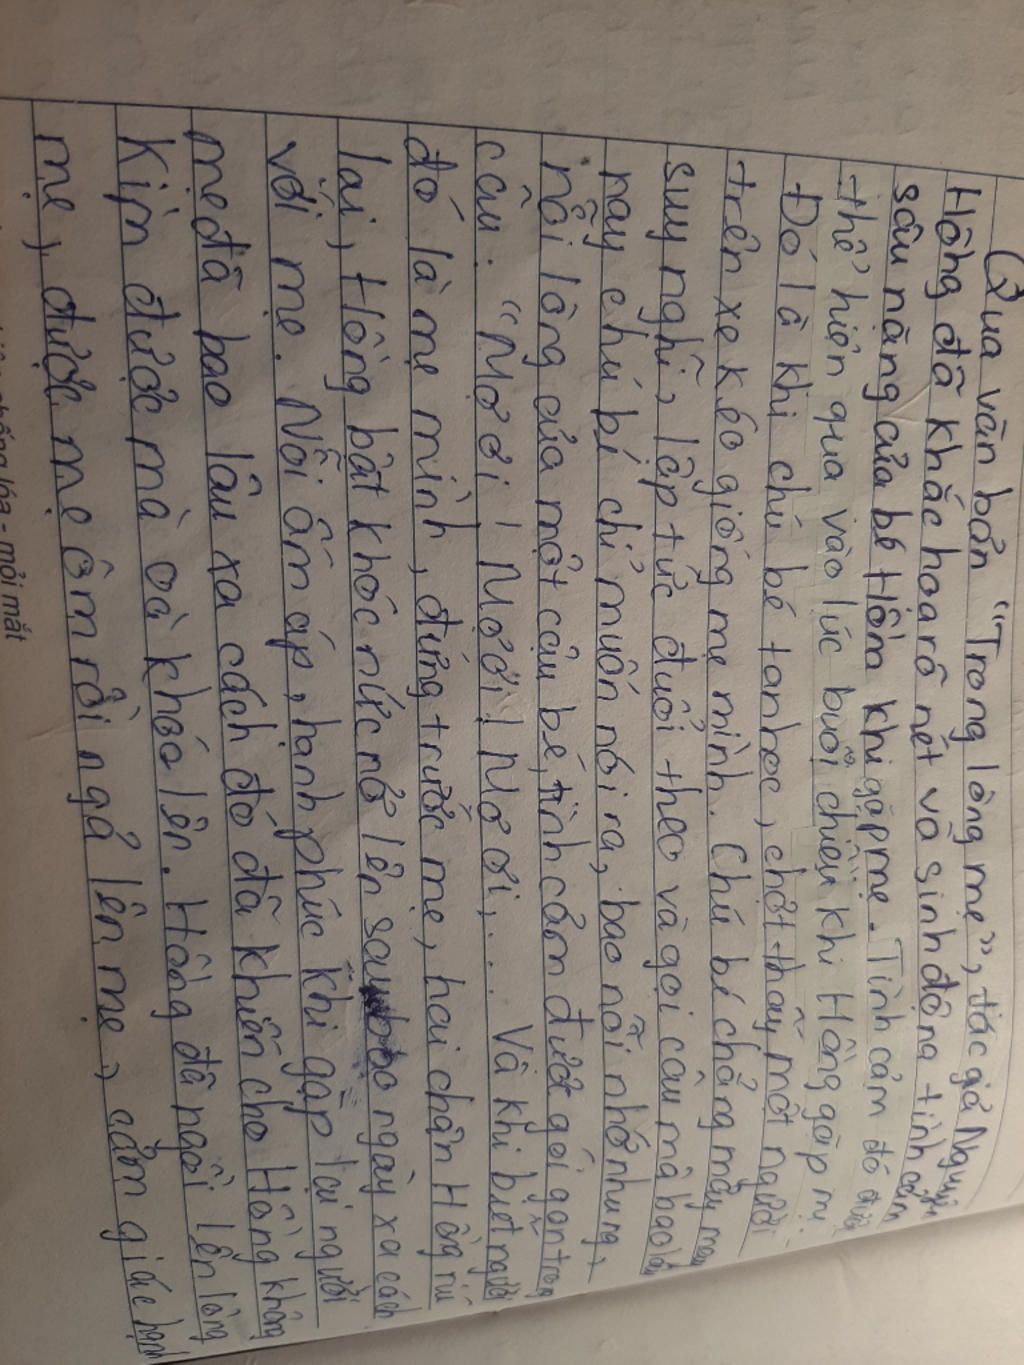 Qua văn bản "Trong lòng mẹ", tác giả Nguyên
Hồng đã khắc hoạ rõ nét và sinh động tình cảm
sâu nặng của bé Hồng khi gặp mẹ. Tình cảm đó được
thể hiện qua vào lúc buổi chiều khi Hồng gặp mẹ.
Đó là khi chú bé tan học, chợt thấy một người
trên xe kéo giống mẹ mình. Chú bé chẳng mảy may
suy nghĩ, lập tức đuổi theo và gọi câu mà bao lâu
nay chú bé chỉ muốn nói ra, bao nỗi nhớ nhung,
nỗi lòng của một cậu bé, tình cảm được gói gọn trong
câu: "Mợ ơi! Mợ ơi! Mợ ơi,... Và khi biết người
đó là mẹ mình, đứng trước mẹ, hai chân Hồng ríu
lại, Hồng bật khóc nức nở lên sau bao ngày xa cách
với mẹ. Nỗi ấm áp, hạnh phúc khi gặp lại người
mẹ đã bao lâu xa cách đó đã khiến cho Hồng không
kìm được mà oà khóc lên. Hồng đã ngồi lên lòng
mẹ, được mẹ ôm rồi ngả lên mẹ, cảm giác hạnh
- mỏi mắt